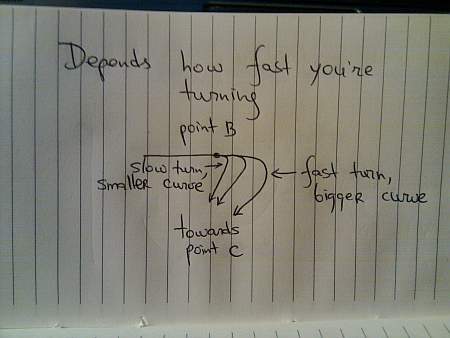 Depends how fast you're
turning
point B
slow turn,
smaller curve
fast turn,
bigger curve
towards
point C